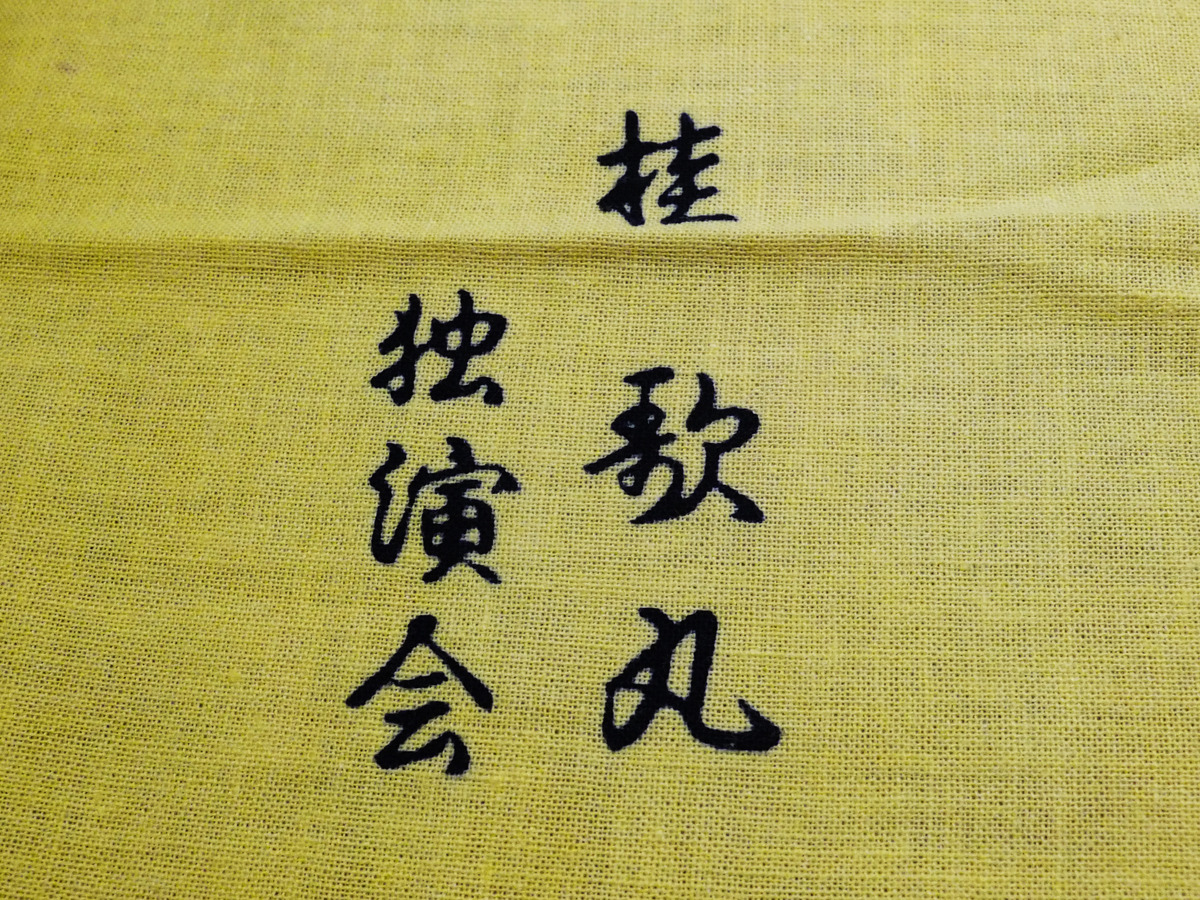 桂歌丸
独演会